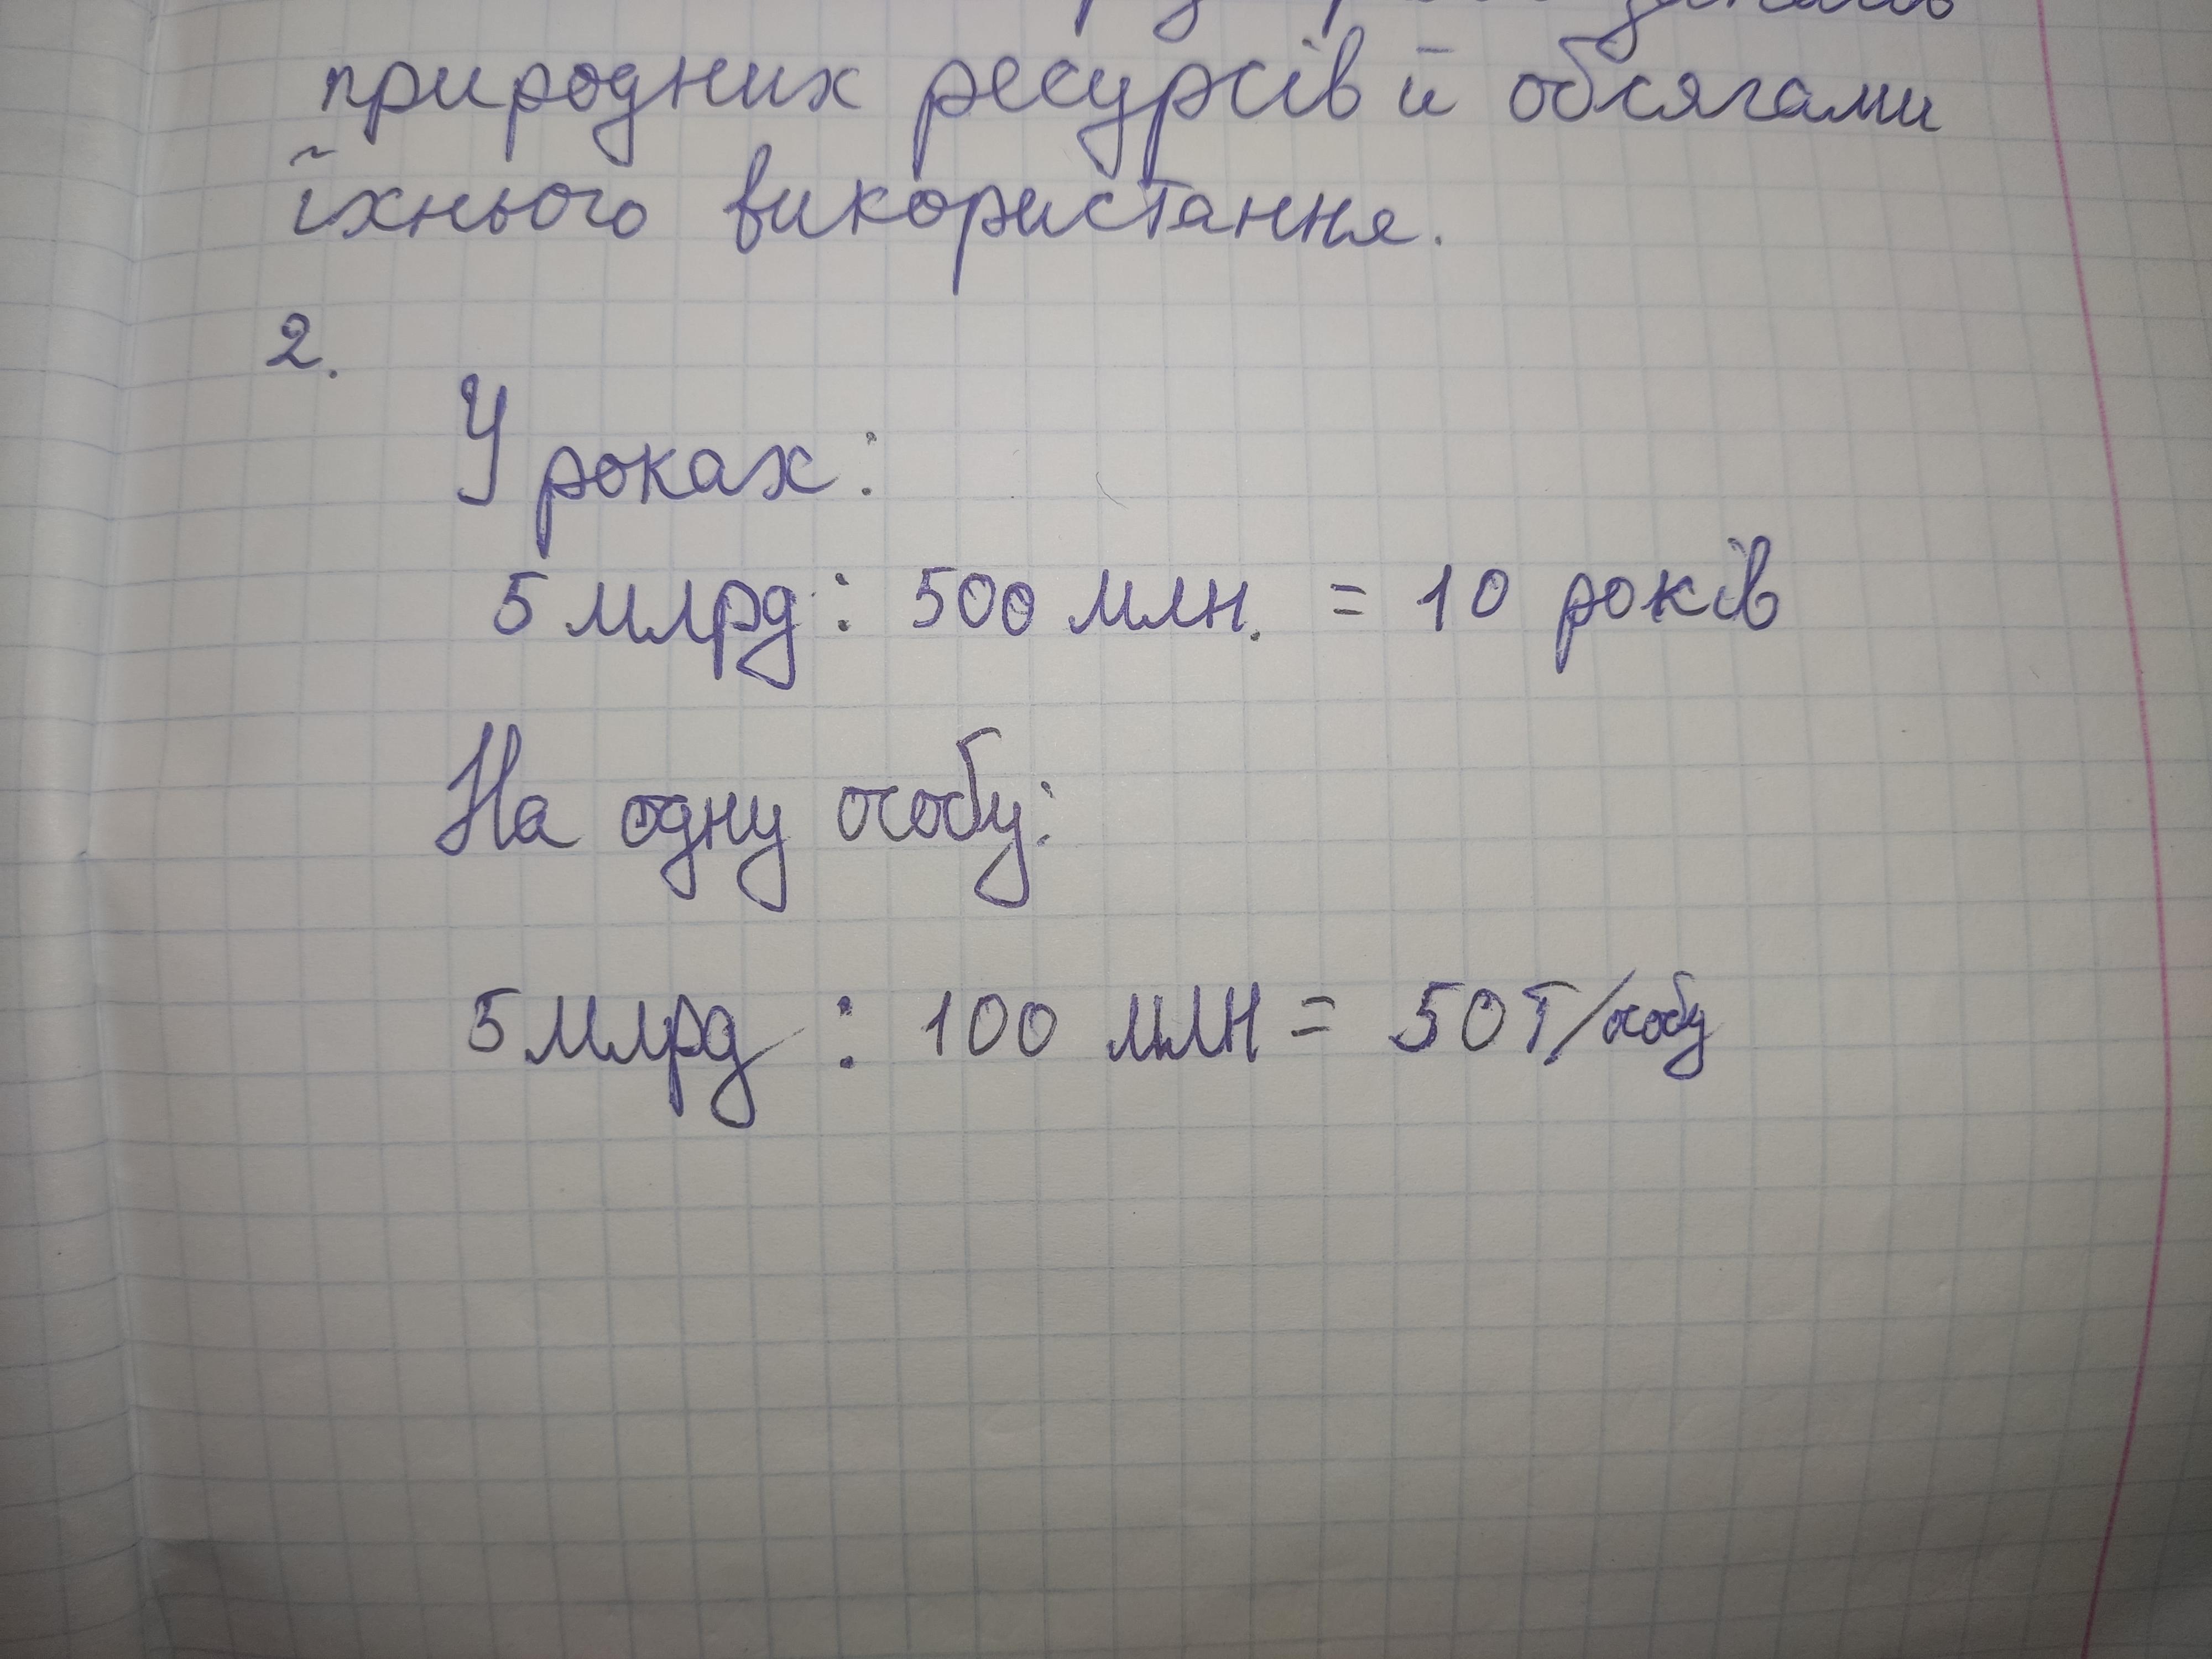 природних ресурсів й обсягами
їхнього використання.
2.
У роках:
5 млрд : 500 млн. = 10 років
На одну особу:
5 млрд : 100 млн = 50 т/особу